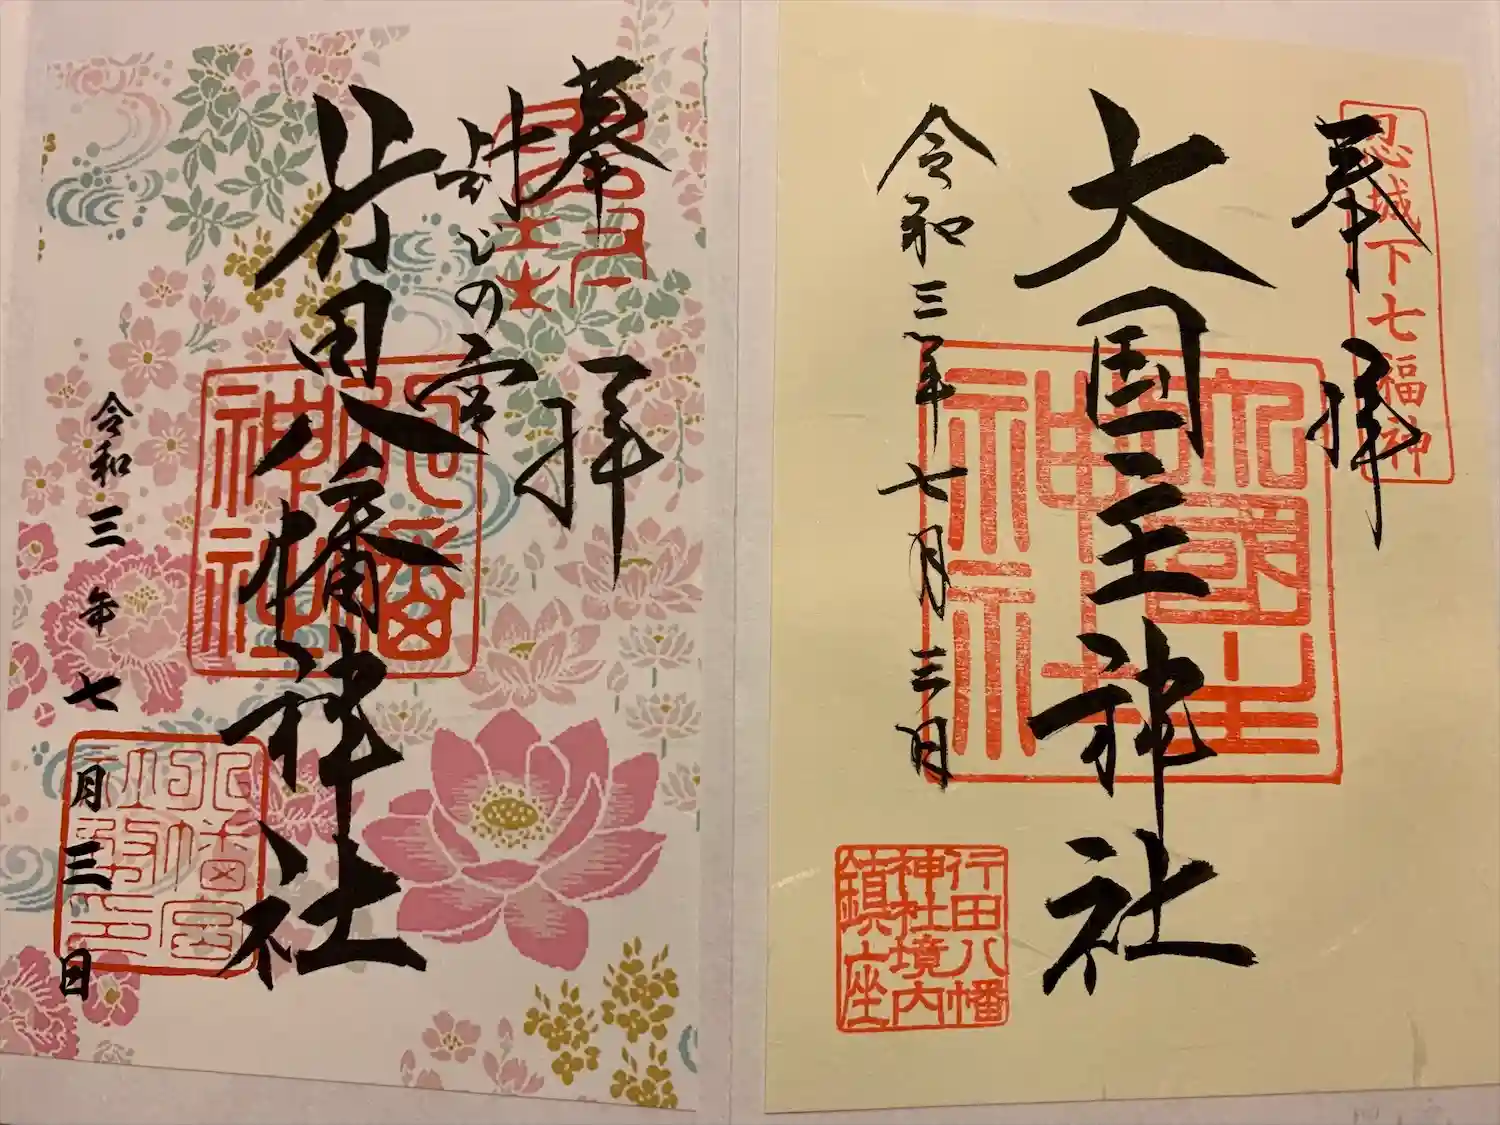 奉拝
忍城下七福神
大国主神社
大國主神社
令和三年七月三日
行田八幡
神社境内
鎮座
奉拝
封じの宮
行田八幡神社
八幡
神社
令和三年七月三日
八幡宮
社務印